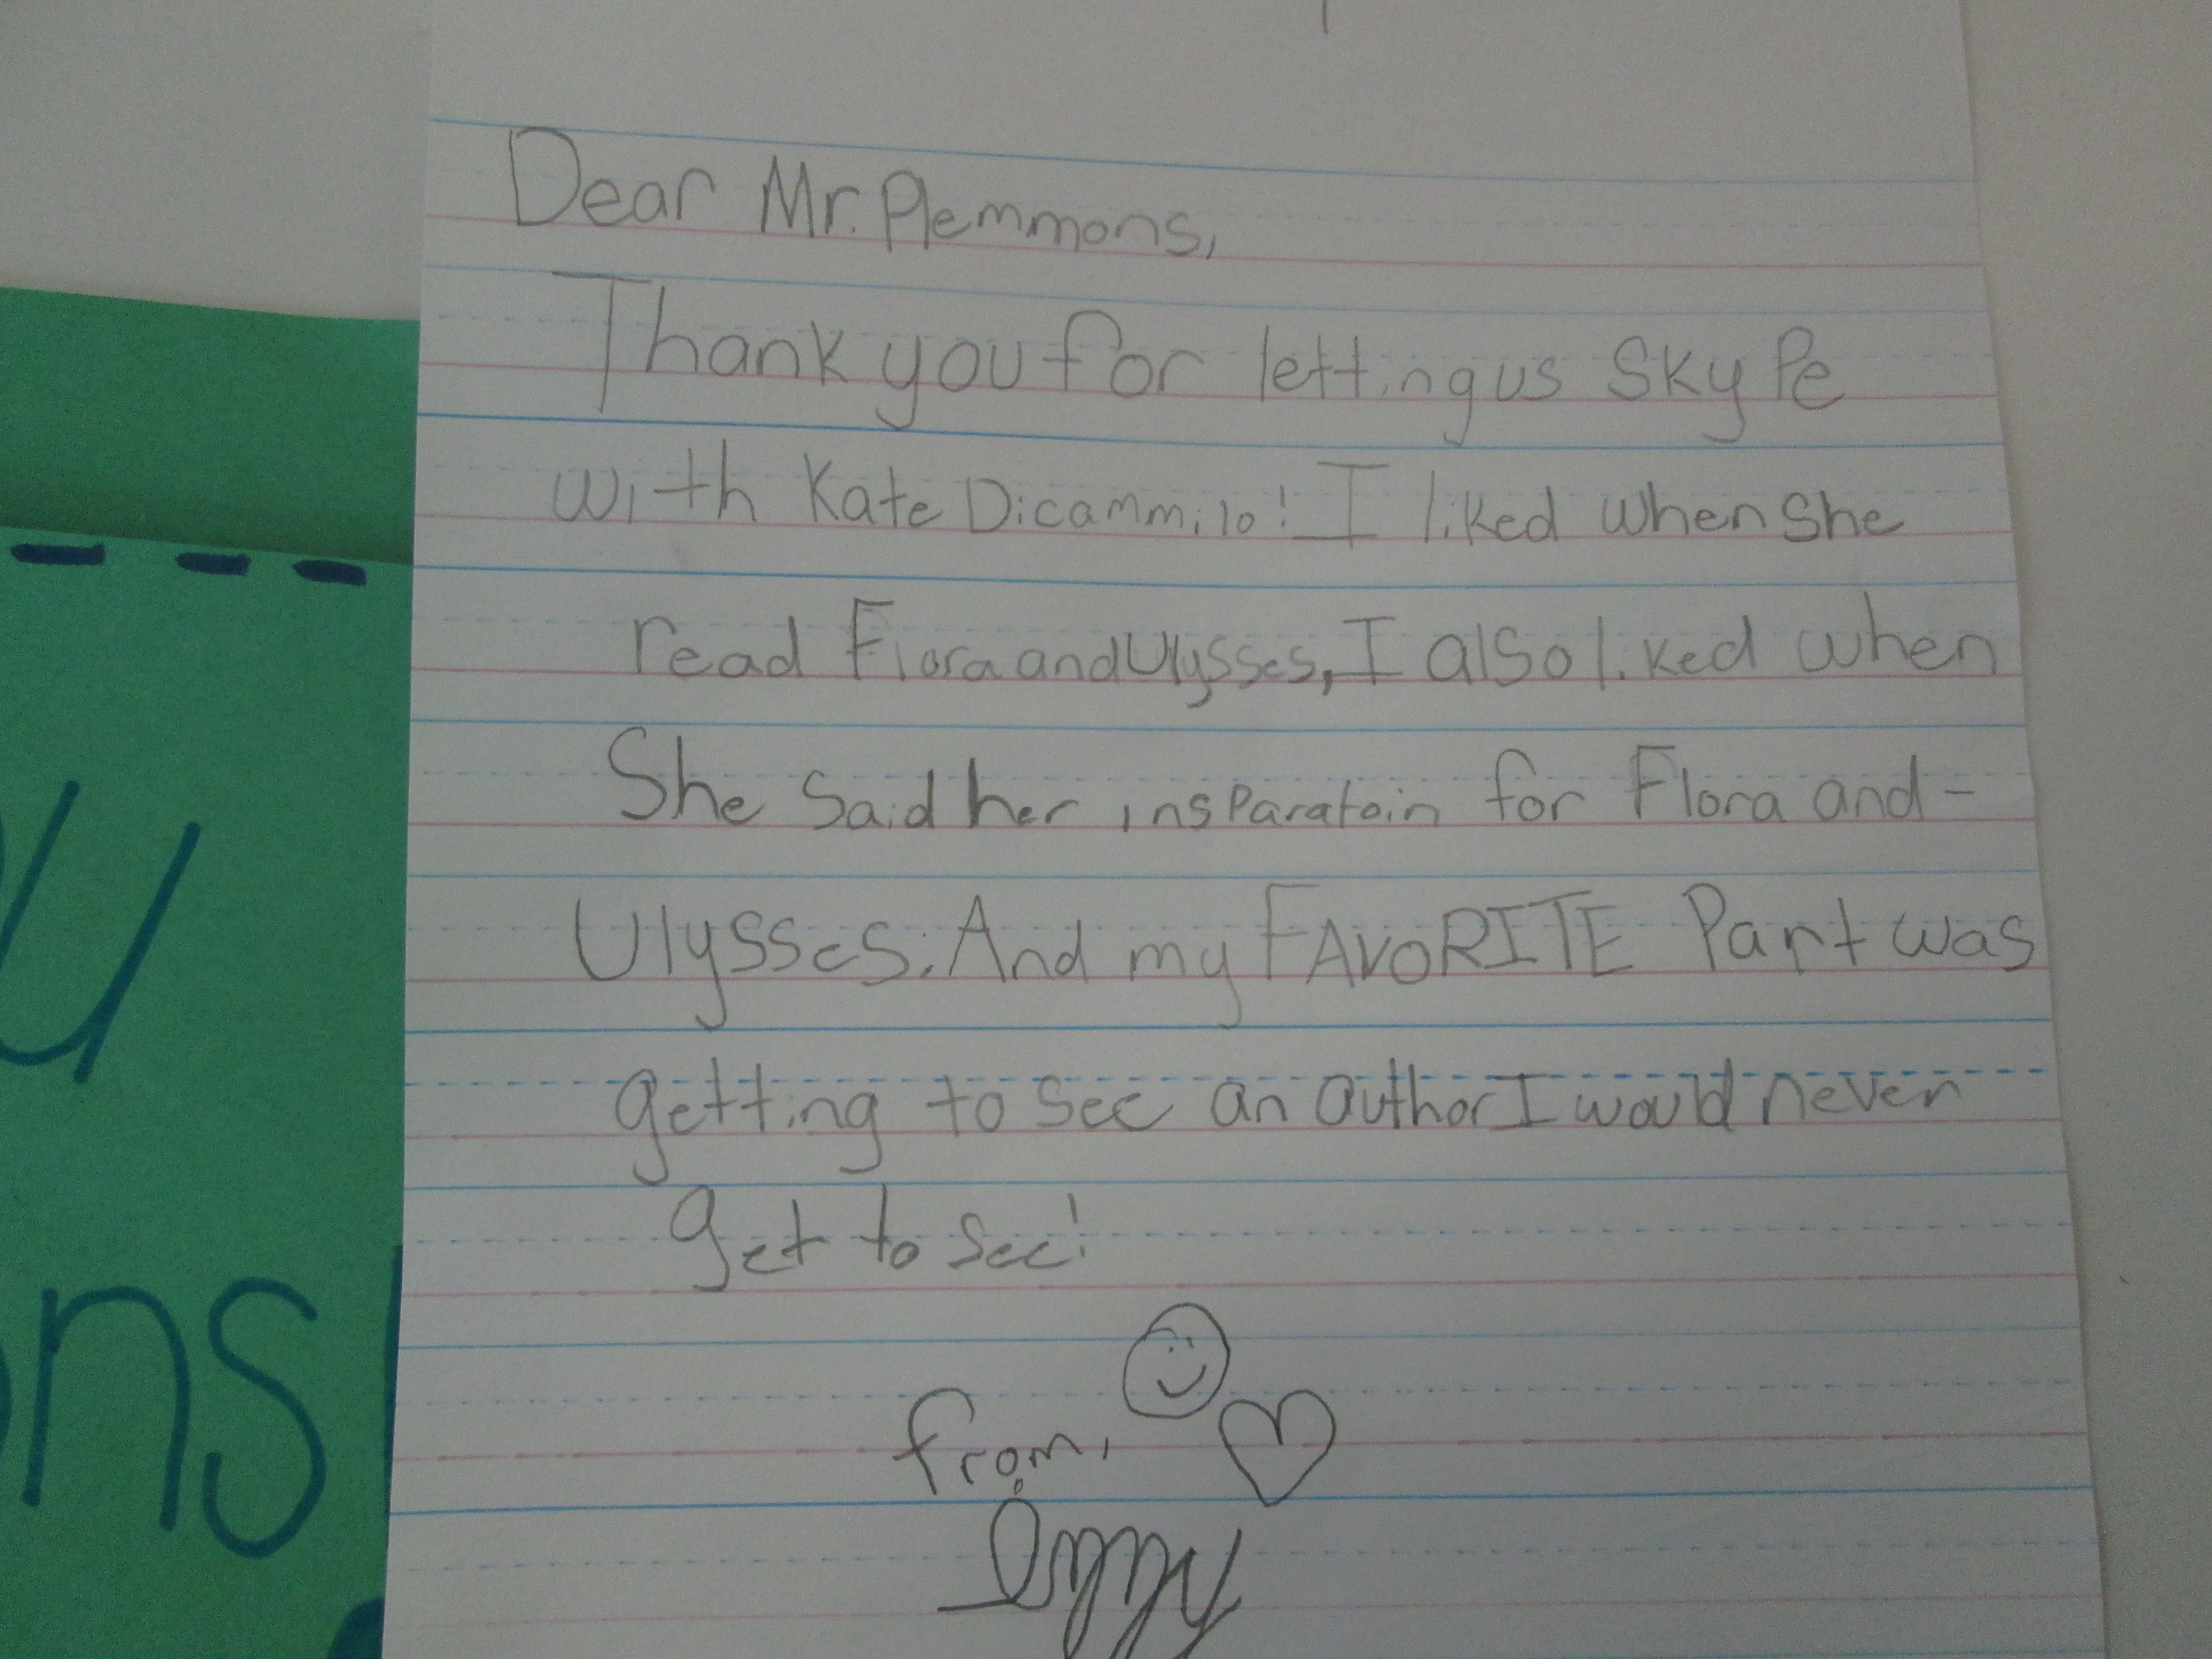 Dear Mr. Plemmons,
Thank you for letting us SkyPe
with Kate Dicammilo! I liked when She
read Flora and Ulysses, I also liked when
She Said her insParatoin for Flora and-
Ulysses. And my FAVORITE Part was
getting to see an author I would never
get to see!
from,
Izzy
U
ns!